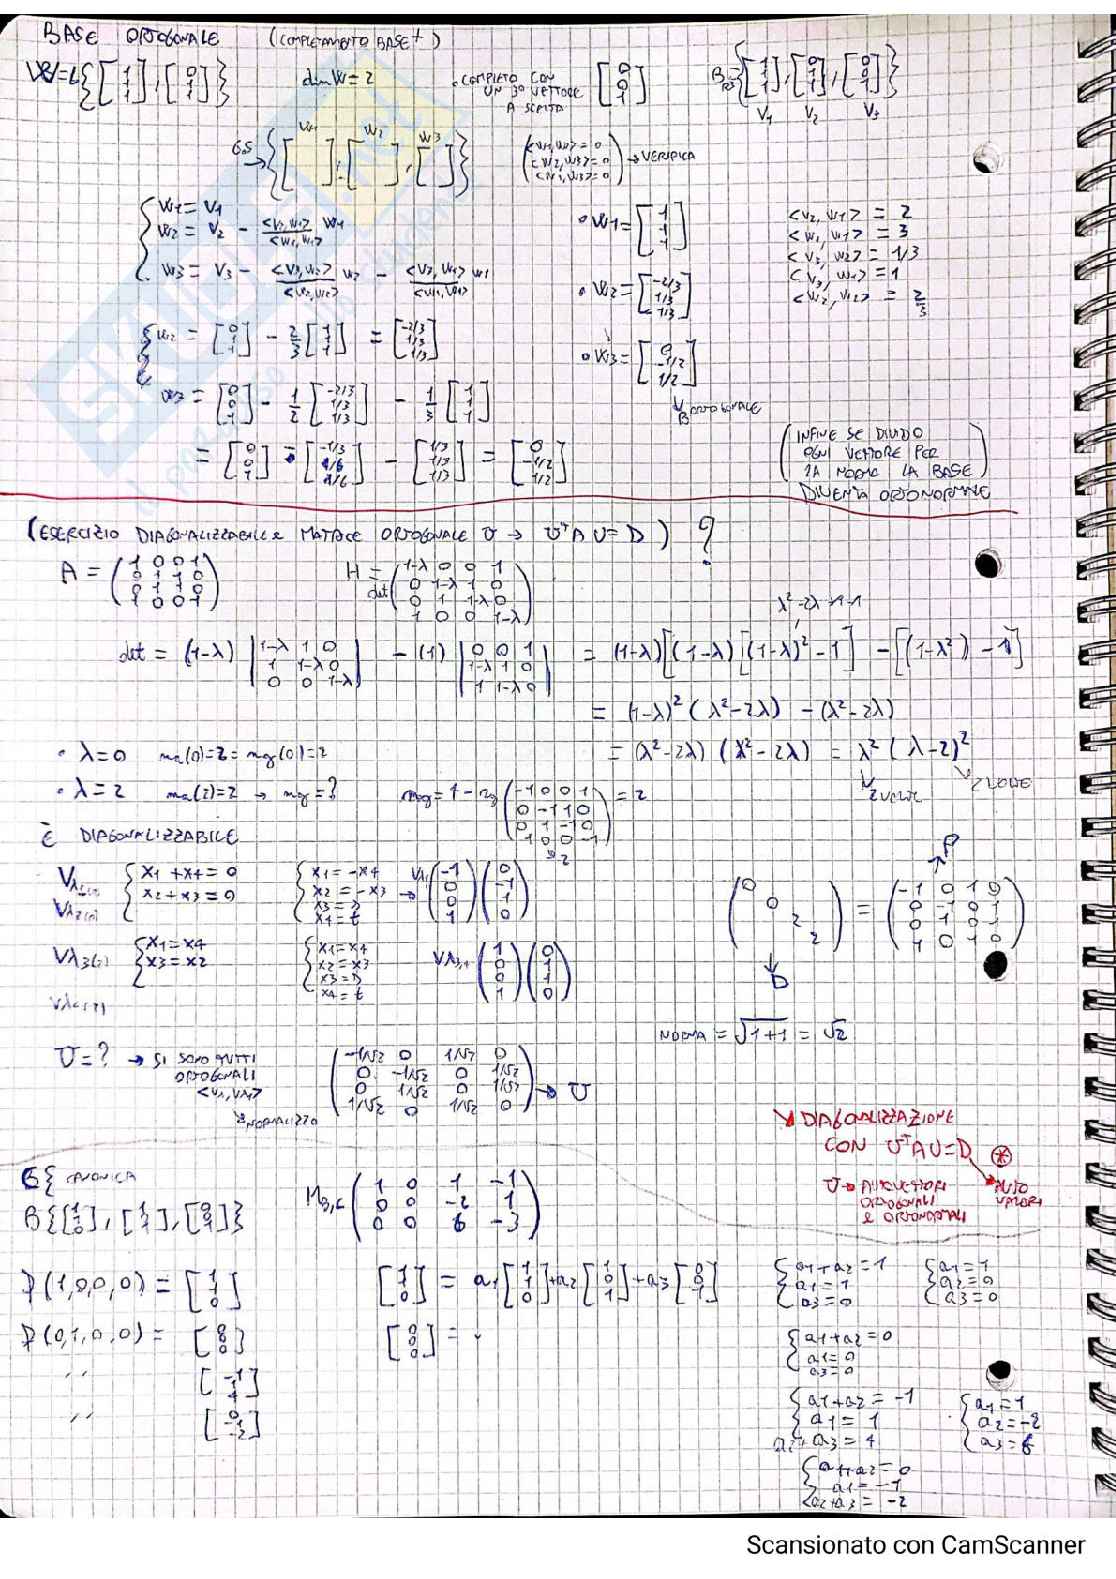 BASE ORTOGONALE (COMPLETAMENTO BASE+)
W=L{[1 1 1],[0 1 1]} dim W=2 • COMPLETO CON UN 3° VETTORE A SCELTA [0 0 1] B = {[1 1 1],[0 1 1],[0 0 1]}
V1 V2 V3
G.S → {[ ],[ ],[ ]} W1 W2 W3 (<w1,w2>=0 <w2,w3>=0 <w1,w3>=0) → VERIFICA
W1 = V1
W2 = V2 - <v2,w1>/<w1,w1> W1
W3 = V3 - <v3,w2>/<w2,w2> w2 - <v3,w1>/<w1,w1> w1
• W1 = [1 1 1]
• W2 = [-2/3 1/3 1/3]
• W3 = [0 -1/2 1/2]
↓ B ORTOGONALE
<v2,w1> = 2
<w1,w1> = 3
<v3,w2> = 1/3
<v3,w1> = 1
<w2,w2> = 2/3
w2 = [0 1 1] - 2/3 [1 1 1] = [-2/3 1/3 1/3]
w3 = [0 0 1] - 1/2 [-2/3 1/3 1/3] - 1/3 [1 1 1]
= [0 0 1] - [-1/3 1/6 1/6] - [1/3 1/3 1/3] = [0 -1/2 1/2]
(INFINE SE DIVIDO
OGNI VETTORE PER
LA NORMA LA BASE
DIVENTA ORTONORMALE
(ESERCIZIO DIAGONALIZZABILE MATRICE ORTOGONALE U → UᵀAU=D) ?
A = (1 0 0 1
0 1 1 0
0 1 1 0
1 0 0 1)
H = det (1-λ 0 0 1
0 1-λ 1 0
0 1 1-λ 0
1 0 0 1-λ)
λ²-2λ+1-1
det = (1-λ) |1-λ 1 0 / 1 1-λ 0 / 0 0 1-λ| - (1) |0 0 1 / 1-λ 1 0 / 1 1-λ 0| = (1-λ)[(1-λ)[(1-λ)²-1] - [(1-λ²)-1]
= (1-λ)² (λ²-2λ) - (λ²-2λ)
= (λ²-2λ) (λ²-2λ) = λ² (λ-2)²
2 VOLTE 2 VOLTE
• λ=0 ma(0)=2= mg(0)=2
• λ=2 ma(2)=2 → mg=? mg = 4 - rg (-1 0 0 1 / 0 -1 1 0 / 0 1 -1 0 / 1 0 0 -1) = 2
2
È DIAGONALIZZABILE
Vλ1(0) Vλ2(0) {x1+x4=0 x2+x3=0 {x1=-x4 x2=-x3 x3=s x4=t → Vλ1 (-1 0 0 1)(0 -1 1 0)
(0 0 2 2) = (-1 0 1 0 / 0 -1 0 1 / 0 1 0 1 / 1 0 1 0) → P
↓ D
Vλ3(2) Vλ4(2) {x1=x4 x3=x2 {x1=x4 x2=x3 x3=s x4=t Vλ3,4 (1 0 0 1)(0 1 1 0)
NORMA = √1+1 = √2
U=? → SI SONO TUTTI
ORTOGONALI
<v1,v2>
NORMALIZZO
(-1/√2 0 1/√2 0
0 -1/√2 0 1/√2
0 1/√2 0 1/√2
1/√2 0 1/√2 0) → U
DIAGONALIZZAZIONE
CON UᵀAU=D ⊛
U → AUTOVETTORI
ORTOGONALI
E ORTONORMALI
AUTO
VALORI
{ CANONICA
B{[1 1 0],[1 0 1],[0 0 1]}
MB,C (1 0 1 -1
0 0 -2 1
0 0 6 -3)
f(1,0,0,0) = [1 1 0] [1 1 0] = a1[1 1 0]+a2[1 0 1]+a3[0 0 1] {a1+a2=1 a1=1 a3=0 {a1=1 a2=0 a3=0
f(0,1,0,0) = [0 0 0] [0 0 0] = {a1+a2=0 a1=0 a3=0
" [-1 1 4] {a1+a2=-1 a1=1 a2+a3=4 {a1=1 a2=-2 a3=6
" [0 -1 -2] {a1+a2=0 a1=-1 a2+a3=-2
Scansionato con CamScanner